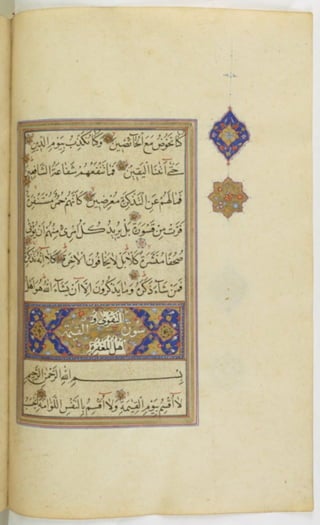 كنا نخوض مع الخائضين وكنا نكذب بيوم الدين
حتى اتنا اليقين فما تنفعهم شفاعة الشافعين
فما لهم عن التذكرة معرضين كانهم حمر مستنفرة
فرت من قسورة بل يريد كل امرئ منهم ان يؤتى
صحفا منشرة كلا بل لا يخافون الاخرة كلا انه تذكرة
فمن شاء ذكره وما يذكرون الا ان يشاء الله هو اهل
التقوى و
سورة القيمة
اهل المغفرة
بسم الله الرحمن الرحيم
لا اقسم بيوم القيمة ولا اقسم بالنفس اللوامة